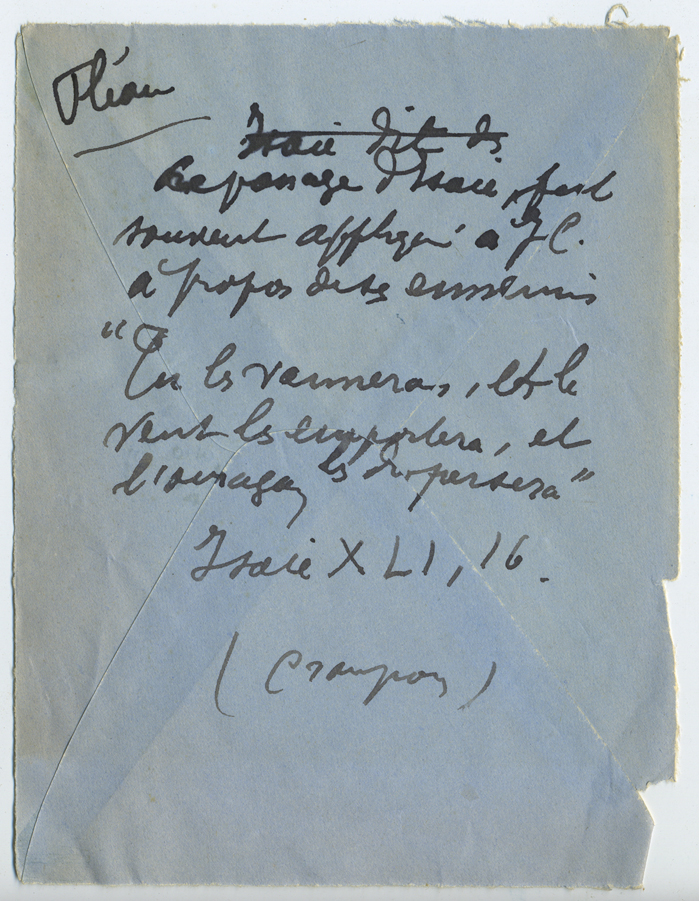 Fléau
Isaïe dit ds
Ce passage d'Isaïe, fut
souvent appliqué à J C.
à propos de ses ennemis
"Tu les vanneras, et le
vent les emportera, et
l'ouragan les dispersera"
Isaïe XLI, 16.
(Crampon)